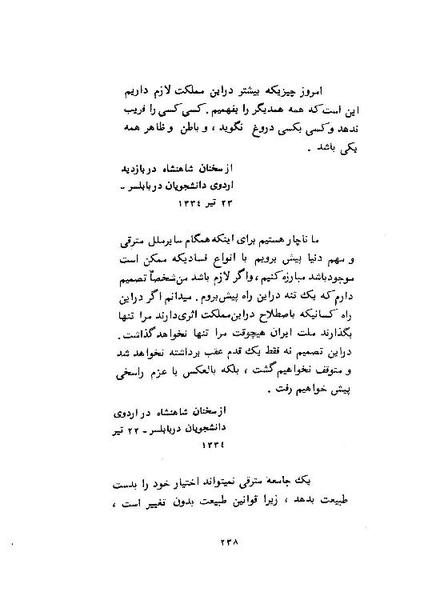 امروز چیزیکه بیشتر دراین مملکت لازم داریم
این است که همه همدیگر را بفهمیم . کسی کسی را فریب
ندهد و کسی بکسی دروغ نگوید ، و باطن و ظاهر همه
یکی باشد .
از سخنان شاهنشاه در بازدید
اردوی دانشجویان در بابلسر ـ
۲۳ تیر ۱۳۳٤
ما ناچار هستیم برای اینکه همگام سایر ملل مترقی
و سهم دنیا پیش برویم با انواع فسادیکه ممکن است
موجود باشد مبارزه کنیم ، واگر لازم باشد من شخصاً تصمیم
دارم که یک تنه دراین راه پیش بروم . میدانم اگر دراین
راه کسانیکه باصطلاح دراین مملکت اثری دارند مرا تنها
بگذارند ملت ایران هیچوقت مرا تنها نخواهد گذاشت .
دراین تصمیم نه فقط یک قدم عقب برداشته نخواهد شد
و متوقف نخواهیم گشت ، بلکه بالعکس با عزم راسخی
پیش خواهیم رفت .
از سخنان شاهنشاه در اردوی
دانشجویان در بابلسر ـ ۲۲ تیر
۱۳۳٤
یک جامعه مترقی نمیتواند اختیار خود را بدست
طبیعت بدهد ، زیرا قوانین طبیعت بدون تغییر است ،
۲۳۸